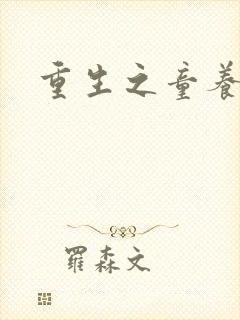 重生之童养
羅森文